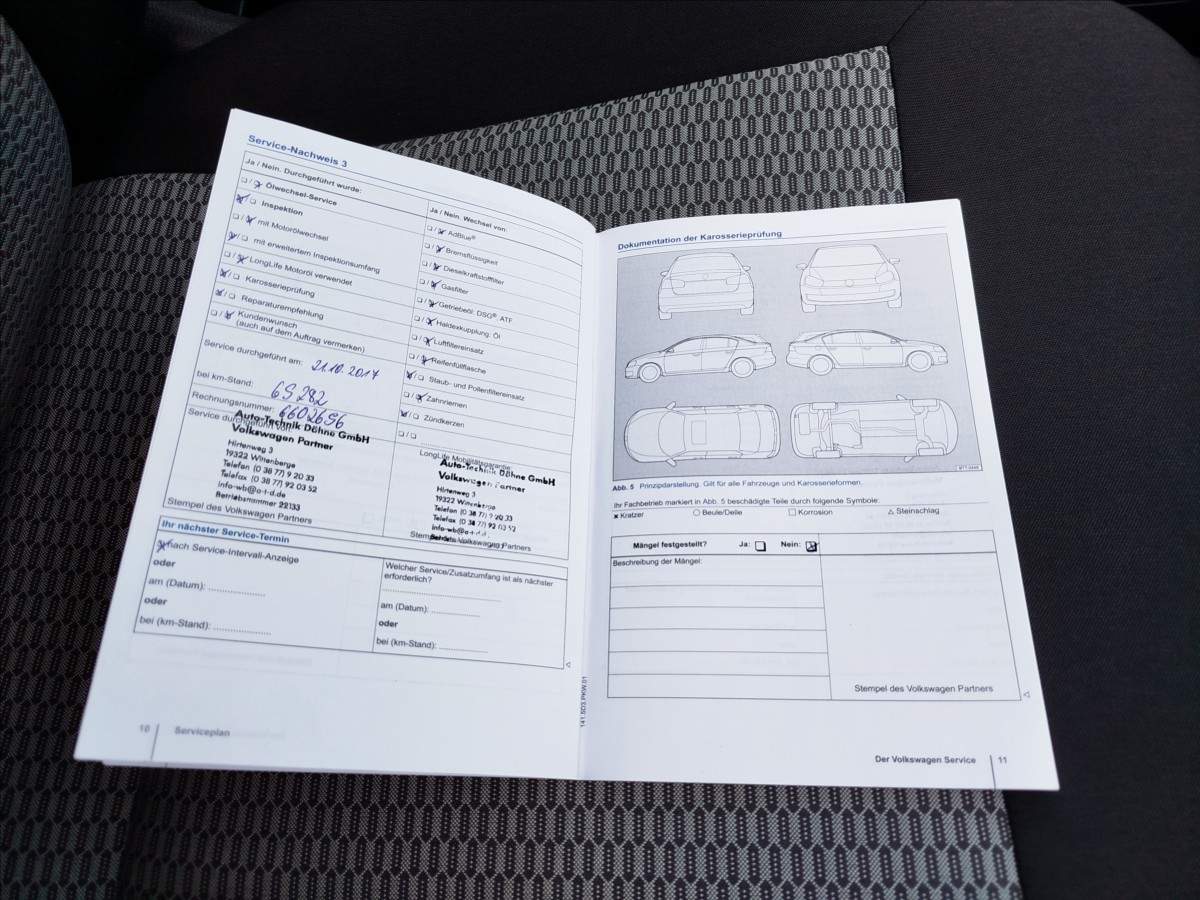 Service-Nachweis 3
Ja / Nein. Durchgeführt wurde:
❑ / ❑ Ölwechsel-Service
❑ / ❑ Inspektion
❑ / ❑ mit Motorölwechsel
❑ / ❑ mit erweitertem Inspektionsumfang
❑ / ❑ LongLife Motoröl verwendet
❑ / ❑ Karosserieprüfung
❑ / ❑ Reparaturempfehlung
❑ / ❑ Kundenwunsch
(auch auf dem Auftrag vermerken)
Service durchgeführt am: 21.10.2017
bei km-Stand: 69282
Rechnungsnummer: 6602656
Service durchgeführt von:
Auto-Technik Döhne GmbH
Volkswagen Partner
Hirtenweg 3
19322 Wittenberge
Telefon (0 38 77) 9 20 33
Telefax (0 38 77) 92 03 52
info-wb@a-t-d.de
Betriebsnummer 22133
Stempel des Volkswagen Partners
Ja / Nein. Wechsel von:
❑ / ❑ AdBlue®
❑ / ❑ Bremsflüssigkeit
❑ / ❑ Dieselkraftstofffilter
❑ / ❑ Gasfilter
❑ / ❑ Getriebeöl: DSG®, ATF
❑ / ❑ Haldexkupplung: Öl
❑ / ❑ Luftfiltereinsatz
❑ / ❑ Reifenfüllflasche
❑ / ❑ Staub- und Pollenfiltereinsatz
❑ / ❑ Zahnriemen
❑ / ❑ Zündkerzen
❑ / ❑
LongLife Mobilitätsgarantie
Auto-Technik Döhne GmbH
Volkswagen Partner
Hirtenweg 3
19322 Wittenberge
Telefon (0 38 77) 9 20 33
Telefax (0 38 77) 92 03 52
info-wb@a-t-d.
Stempel des Volkswagen Partners
Ihr nächster Service-Termin
nach Service-Intervall-Anzeige
oder
am (Datum):
oder
bei (km-Stand):
Welcher Service/Zusatzumfang ist als nächster
erforderlich?
am (Datum):
oder
bei (km-Stand):
141.5D3.PKW.01
10 Serviceplan
Dokumentation der Karosserieprüfung
Abb. 5 Prinzipdarstellung. Gilt für alle Fahrzeuge und Karosserieformen.
Ihr Fachbetrieb markiert in Abb. 5 beschädigte Teile durch folgende Symbole:
× Kratzer ○ Beule/Delle □ Korrosion △ Steinschlag
Mängel festgestellt? Ja: ❑ Nein: ☒
Beschreibung der Mängel:
Stempel des Volkswagen Partners
Der Volkswagen Service 11